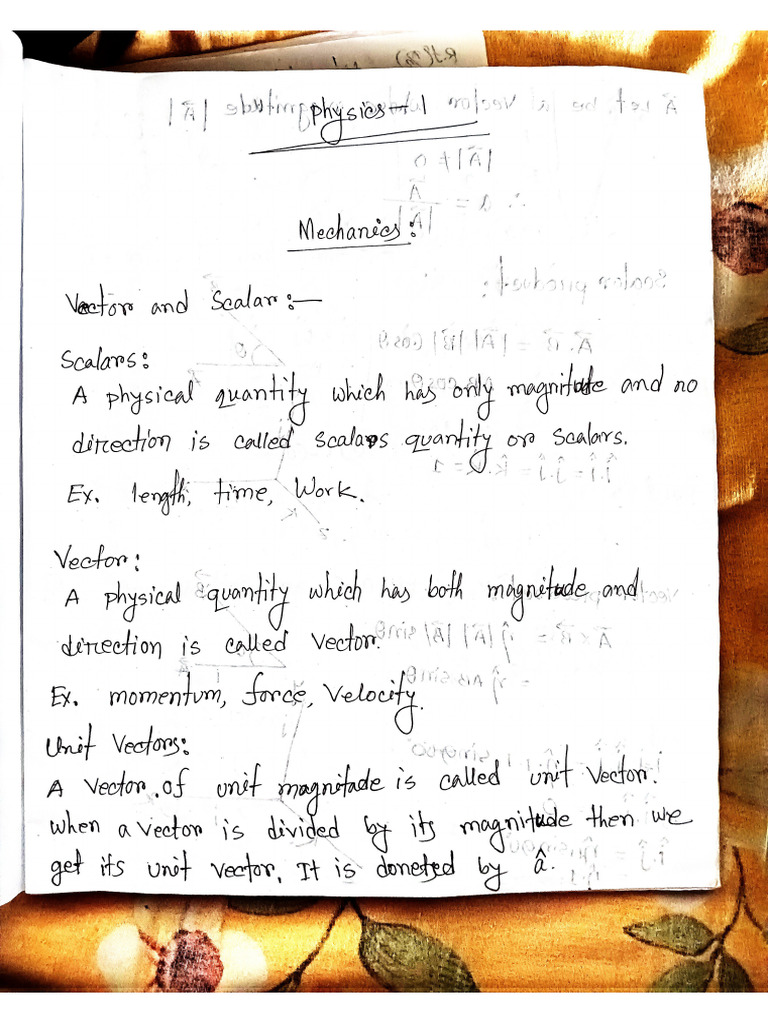 Physics - 1
Mechanics:
Vector and Scalar:—
Scalars:
A physical quantity which has only magnitude and no
direction is called scalars quantity or scalars.
Ex. length, time, Work.
Vector:
A physical quantity which has both magnitude and
direction is called vector.
Ex. momentum, force, Velocity.
Unit Vectors:
A Vector of unit magnitude is called unit vector.
When a vector is divided by its magnitude then we
get its unit vector. It is doneted by â.